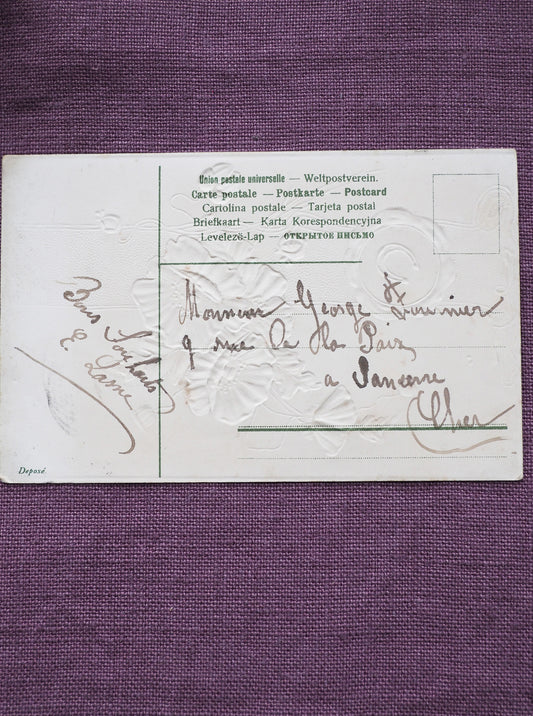 Union postale universelle — Weltpostverein.
Carte postale — Postkarte — Postcard
Cartolina postale — Tarjeta postal
Briefkaart — Karta Korespondencyjna
Levelező-Lap — ОТКРЫТОЕ ПИСЬМО
Bons Souhaits
E.
Monsieur George Fournier
9 rue de la Paix
a Sancerre
Cher
Deposé